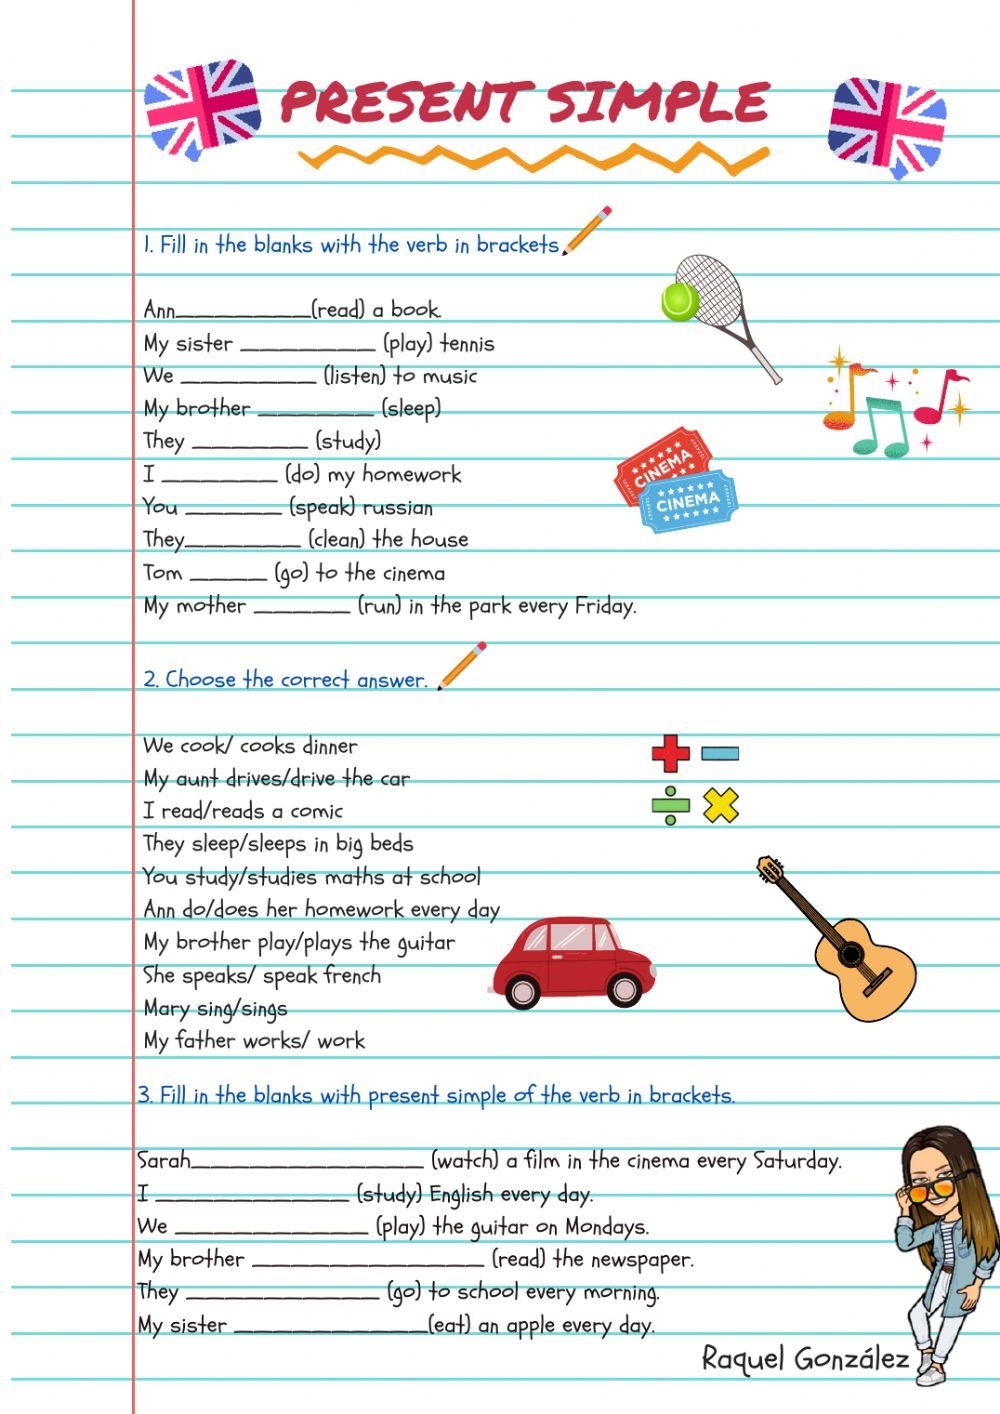 PRESENT SIMPLE
1. Fill in the blanks with the verb in brackets
Ann_______(read) a book.
My sister _______ (play) tennis
We _______ (listen) to music
My brother ______ (sleep)
They ______ (study)
I ______ (do) my homework
You _____ (speak) russian
They______ (clean) the house
Tom ____ (go) to the cinema
My mother _____ (run) in the park every Friday.
CINEMA
CINEMA
2. Choose the correct answer.
We cook/ cooks dinner
My aunt drives/drive the car
I read/reads a comic
They sleep/sleeps in big beds
You study/studies maths at school
Ann do/does her homework every day
My brother play/plays the guitar
She speaks/ speak french
Mary sing/sings
My father works/ work
3. Fill in the blanks with present simple of the verb in brackets.
Sarah____________ (watch) a film in the cinema every Saturday.
I __________ (study) English every day.
We __________ (play) the guitar on Mondays.
My brother ____________ (read) the newspaper.
They __________ (go) to school every morning.
My sister __________(eat) an apple every day.
Raquel González